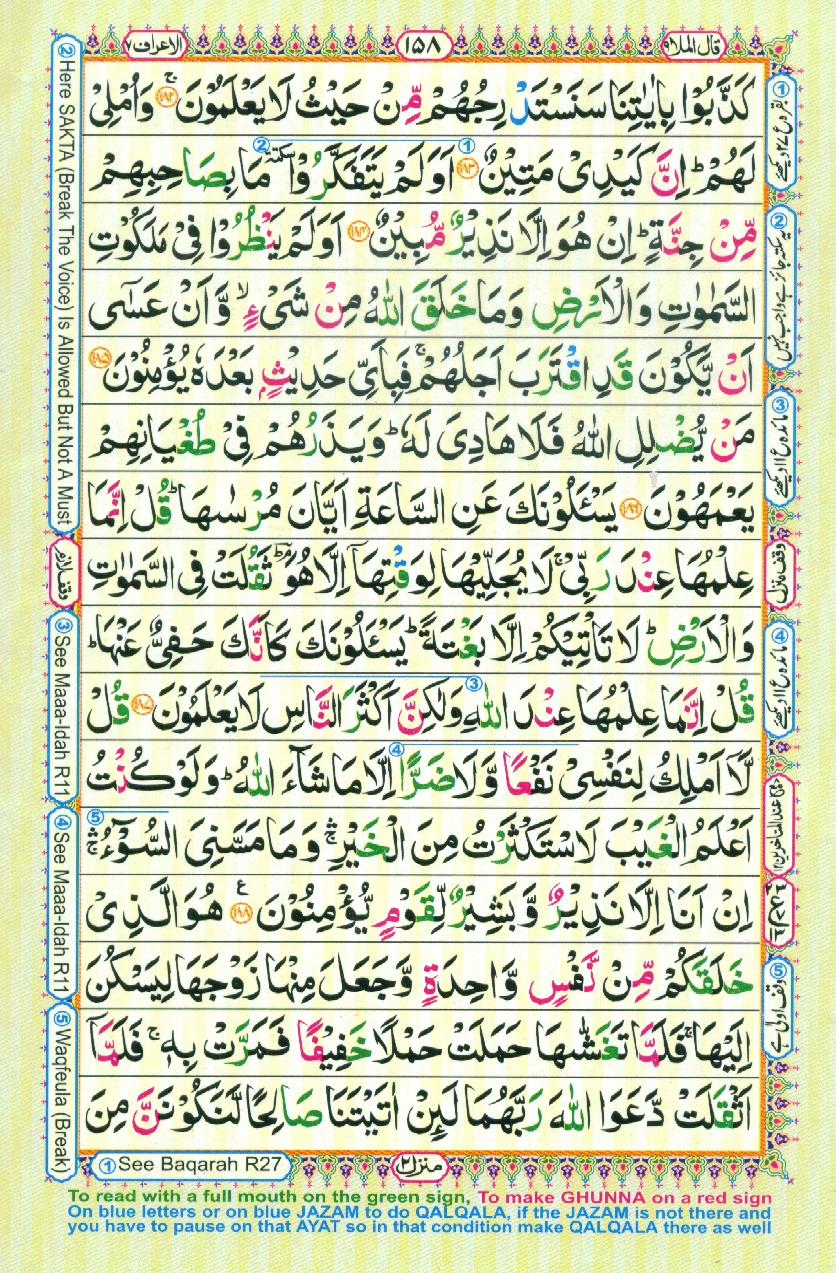 قال الملا ٩
١٥٨
الاعراف ٧
كَذَّبُوْا بِاٰيٰتِنَا سَنَسْتَدْرِجُهُمْ مِّنْ حَيْثُ لَا يَعْلَمُوْنَ ۚۖ‏ ﴿۱۸۲﴾ وَاُمْلِىْ
لَهُمْ ؕ اِنَّ كَيْدِىْ مَتِيْنٌ ﴿۱۸۳﴾ اَوَلَمْ يَتَفَكَّرُوْا ٚ مَا بِصَاحِبِهِمْ
مِّنْ جِنَّةٍ ؕ اِنْ هُوَ اِلَّا نَذِيْرٌ مُّبِيْنٌ ﴿۱۸۴﴾ اَوَلَمْ يَنْظُرُوْا فِىْ مَلَكُوْتِ
السَّمٰوٰتِ وَالْاَرْضِ وَمَا خَلَقَ اللّٰهُ مِنْ شَىْءٍ ۙ وَّ اَنْ عَسٰٓى
اَنْ يَّكُوْنَ قَدِ اقْتَرَبَ اَجَلُهُمْ ۚ فَبِاَىِّ حَدِيْثٍۭ بَعْدَهٗ يُؤْمِنُوْنَ ﴿۱۸۵﴾
مَنْ يُّضْلِلِ اللّٰهُ فَلَا هَادِىَ لَهٗ ؕ وَيَذَرُهُمْ فِىْ طُغْيَانِهِمْ
يَعْمَهُوْنَ ﴿۱۸۶﴾ يَسْـَٔلُوْنَكَ عَنِ السَّاعَةِ اَيَّانَ مُرْسٰٮهَا ؕ قُلْ اِنَّمَا
عِلْمُهَا عِنْدَ رَبِّىْ ۚ لَا يُجَلِّيْهَا لِوَقْتِهَاۤ اِلَّا هُوَ ؔؕ ثَقُلَتْ فِى السَّمٰوٰتِ
وَالْاَرْضِ ؕ لَا تَاْتِيْكُمْ اِلَّا بَغْتَةً ؕ يَسْـَٔلُوْنَكَ كَاَنَّكَ حَفِىٌّ عَنْهَا ؕ
قُلْ اِنَّمَا عِلْمُهَا عِنْدَ اللّٰهِ وَلٰكِنَّ اَكْثَرَ النَّاسِ لَا يَعْلَمُوْنَ ﴿۱۸۷﴾ قُلْ
لَّاۤ اَمْلِكُ لِنَفْسِىْ نَفْعًا وَّلَا ضَرًّا اِلَّا مَا شَآءَ اللّٰهُ ؕ وَلَوْ كُنْتُ
اَعْلَمُ الْغَيْبَ لَاسْتَكْثَرْتُ مِنَ الْخَيْرِ ۛۚ وَمَا مَسَّنِىَ السُّوْٓءُ ۛۚ
اِنْ اَنَا اِلَّا نَذِيْرٌ وَّبَشِيْرٌ لِّقَوْمٍ يُّؤْمِنُوْنَ ﴿۱۸۸﴾ هُوَ الَّذِىْ
خَلَقَكُمْ مِّنْ نَّفْسٍ وَّاحِدَةٍ وَّجَعَلَ مِنْهَا زَوْجَهَا لِيَسْكُنَ
اِلَيْهَا ۚ فَلَمَّا تَغَشّٰٮهَا حَمَلَتْ حَمْلًا خَفِيْفًا فَمَرَّتْ بِهٖ ۚ فَلَمَّاۤ
اَثْقَلَتْ دَّعَوَا اللّٰهَ رَبَّهُمَا لَئِنْ اٰتَيْتَنَا صَالِحًا لَّنَكُوْنَنَّ مِنَ
② Here SAKTA (Break The Voice) Is Allowed But Not A Must
وقف لازم
③ See Maaa-Idah R11
④ See Maaa-Idah R11
⑤ Waqfeula (Break)
② یہ سکتہ جائز ہے واجب نہیں
⑤ وقف اولیٰ ہے
① See Baqarah R27
منزل ٢
To read with a full mouth on the green sign, To make GHUNNA on a red sign
On blue letters or on blue JAZAM to do QALQALA, if the JAZAM is not there and
you have to pause on that AYAT so in that condition make QALQALA there as well